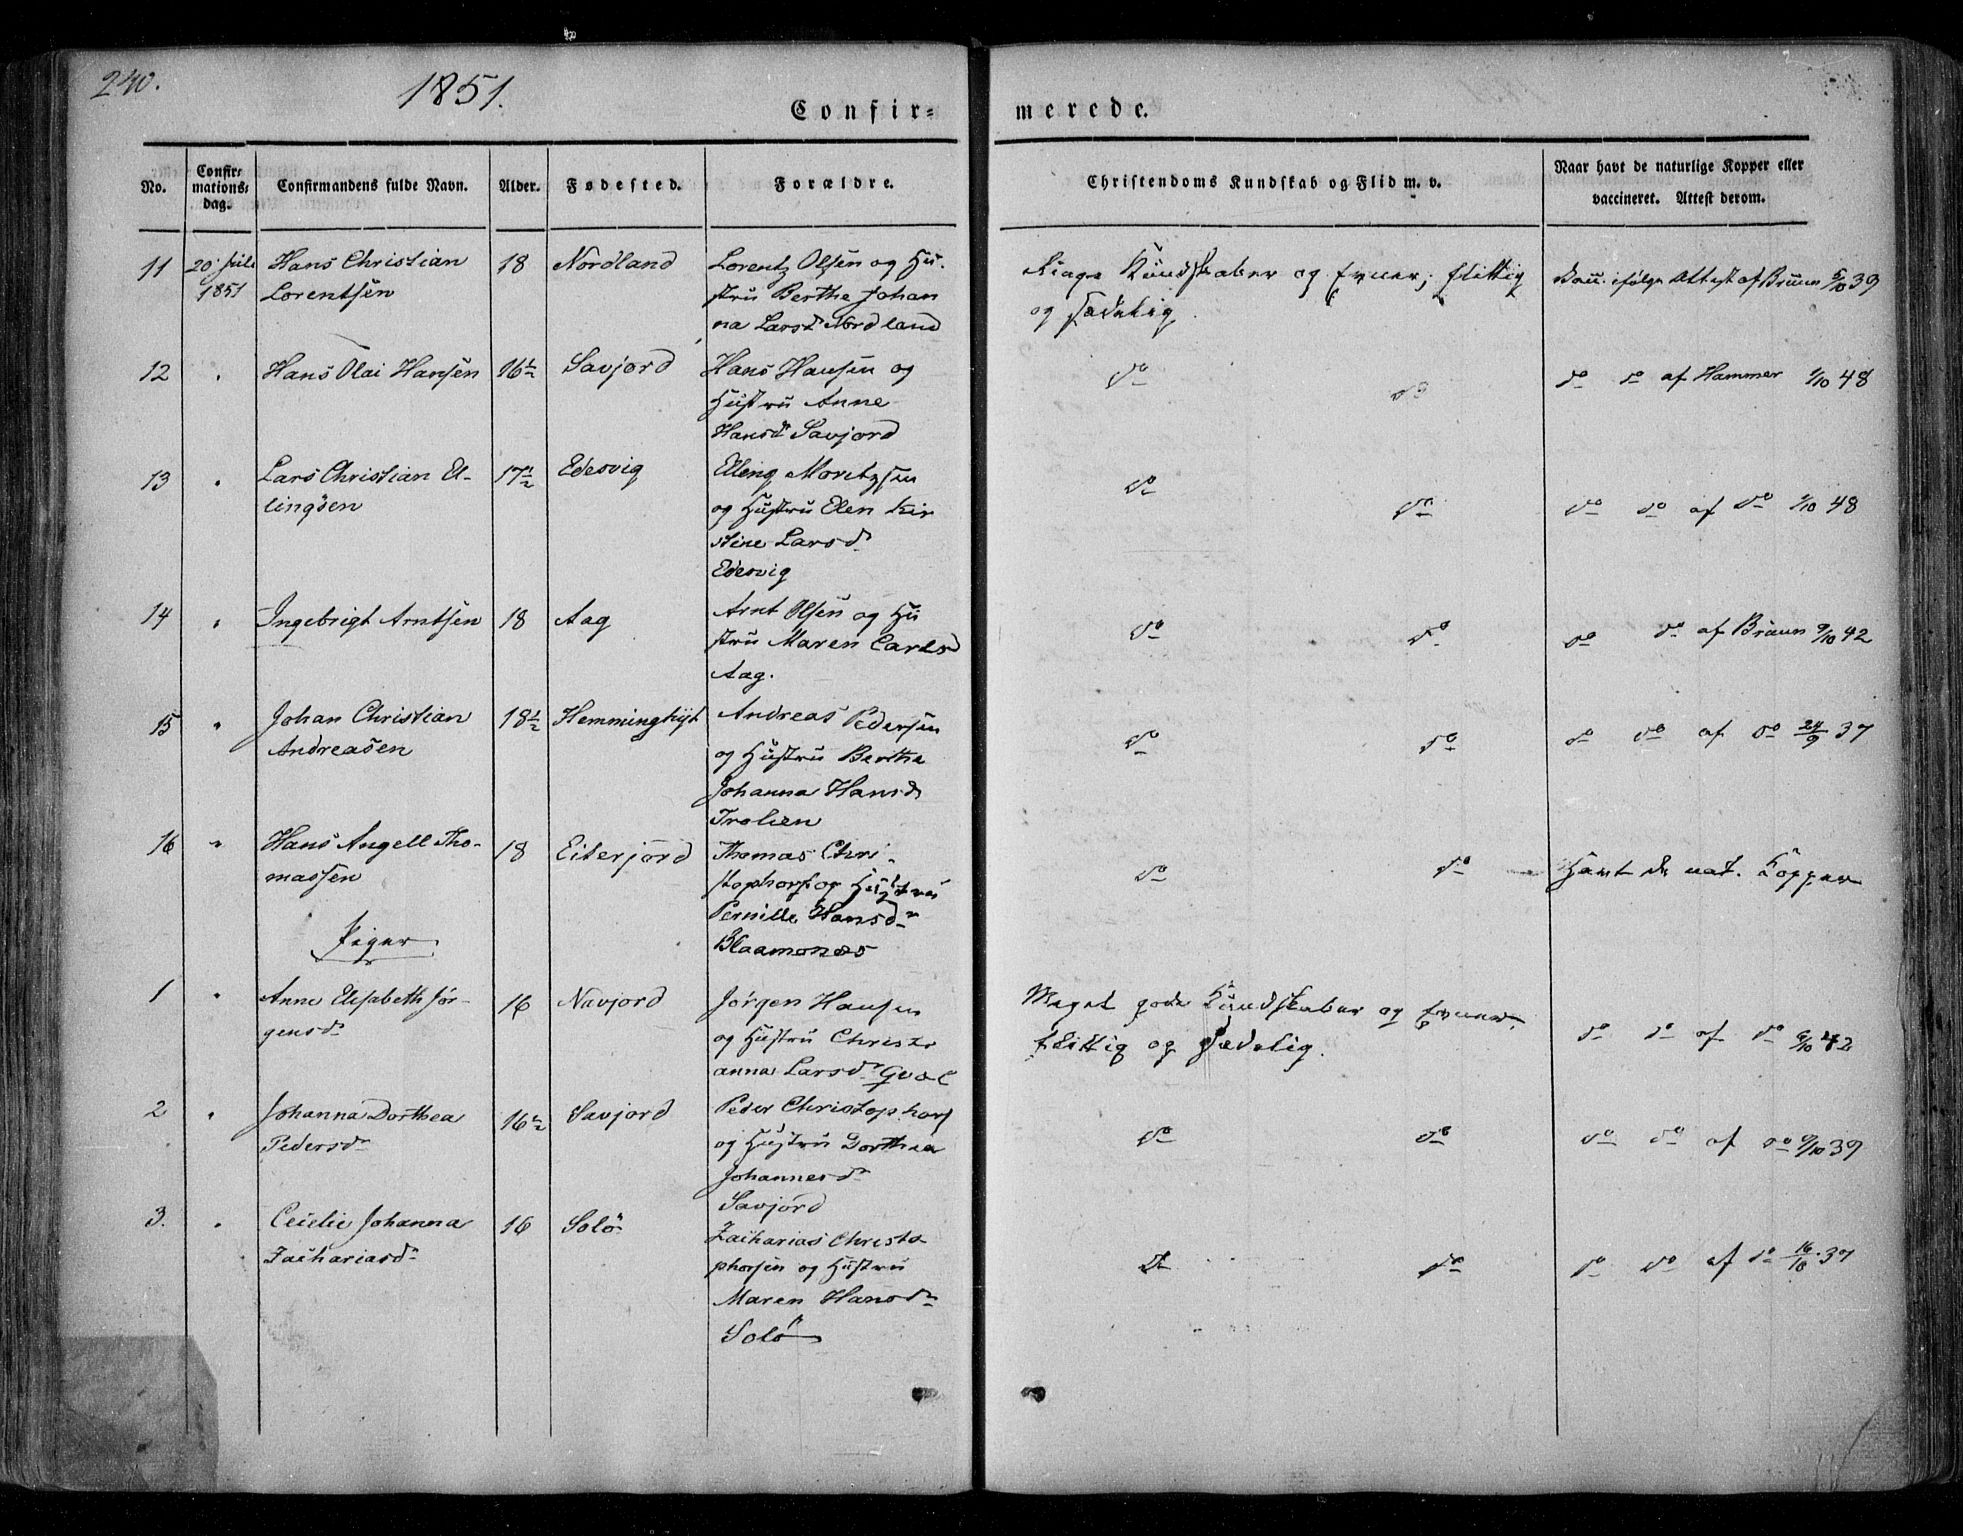 240.
1851.
Confir= merede.
No.
Confir=
mations=
dag.
Confirmandens fulde Navn.
Alder.
Fødested.
Forældre.
Christendoms Kundskab og Flid m. v.
Naar havt de naturlige Kopper eller
vaccineret. Attest derom.
11 20 Juli Hans Christian 18 Nordland Lorentz Olsen og Hu-
1851 Lorentsen stru Berthe Johan
na Larsd Nordland
Kundskaber og Evner; flittig
og sædelig.
Vacc. ifølge Attest af Bruun 5/10 39
12 " Hans Olai Hansen 16½ Savjord Hans Hansen og
Hustru Anne
Hansdr Savjord
do do do do af Hammer 1/10 48
13 " Lars Christian El- 17½ Edesvig Elling Moritzsen
lingsen og Hustru Elen Kir
stine Larsdr
Edesvig
do do do do af do 1/10 48
14 " Ingebrigt Arntsen 18 Aag Arnt Olsen og Hu
stru Maren Carlsd
Aag.
do do do do af Bruun 9/10 42
15 " Johan Christian 18½ Hemminghyt Andreas Pedersen
Andreasen og Hustru Berthe
Johanna Hansd
Trolien
do do do do af do 24/9 37
16 " Hans Angell Tho- 18 Eiterjord Thomas Chri-
massen stophers og Hustru
Pernille Hansdr
Blaamones
do do Havt de nat. Kopper
Piger
1 " Anne Elisabeth Jør- 16 Navjord Jørgen Hansen
gensdr og Hustru Christi
anna Larsdr Qval
Meget gode Kundskaber og Evner,
flittig og sædelig.
do do af do 9/10 42
2 " Johanna Dorthea 16½ Savjord Peder Christophers
Pedersdr og Hustru Dorthea
Johannesdr
Savjord
do do do do af do 9/10 39
3. " Cecilie Johanna 16 Solö Zacharias Christo
Zachariasdr phersen og Hustru
Maren Hansdr
Solö
do do do do af do 16/10 37